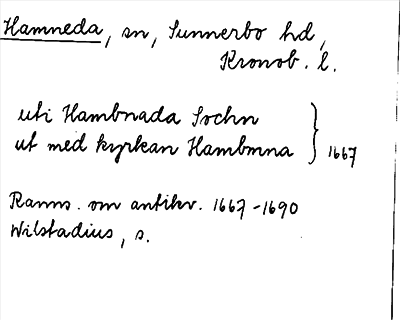 Hamneda, sn, Sunnerbo hd,
Kronob. l.
uti Hambnada Sochn
ut med kyrkan Hambmna } 1667
Ranns. om antikv. 1667-1690
Wilstadius, s.